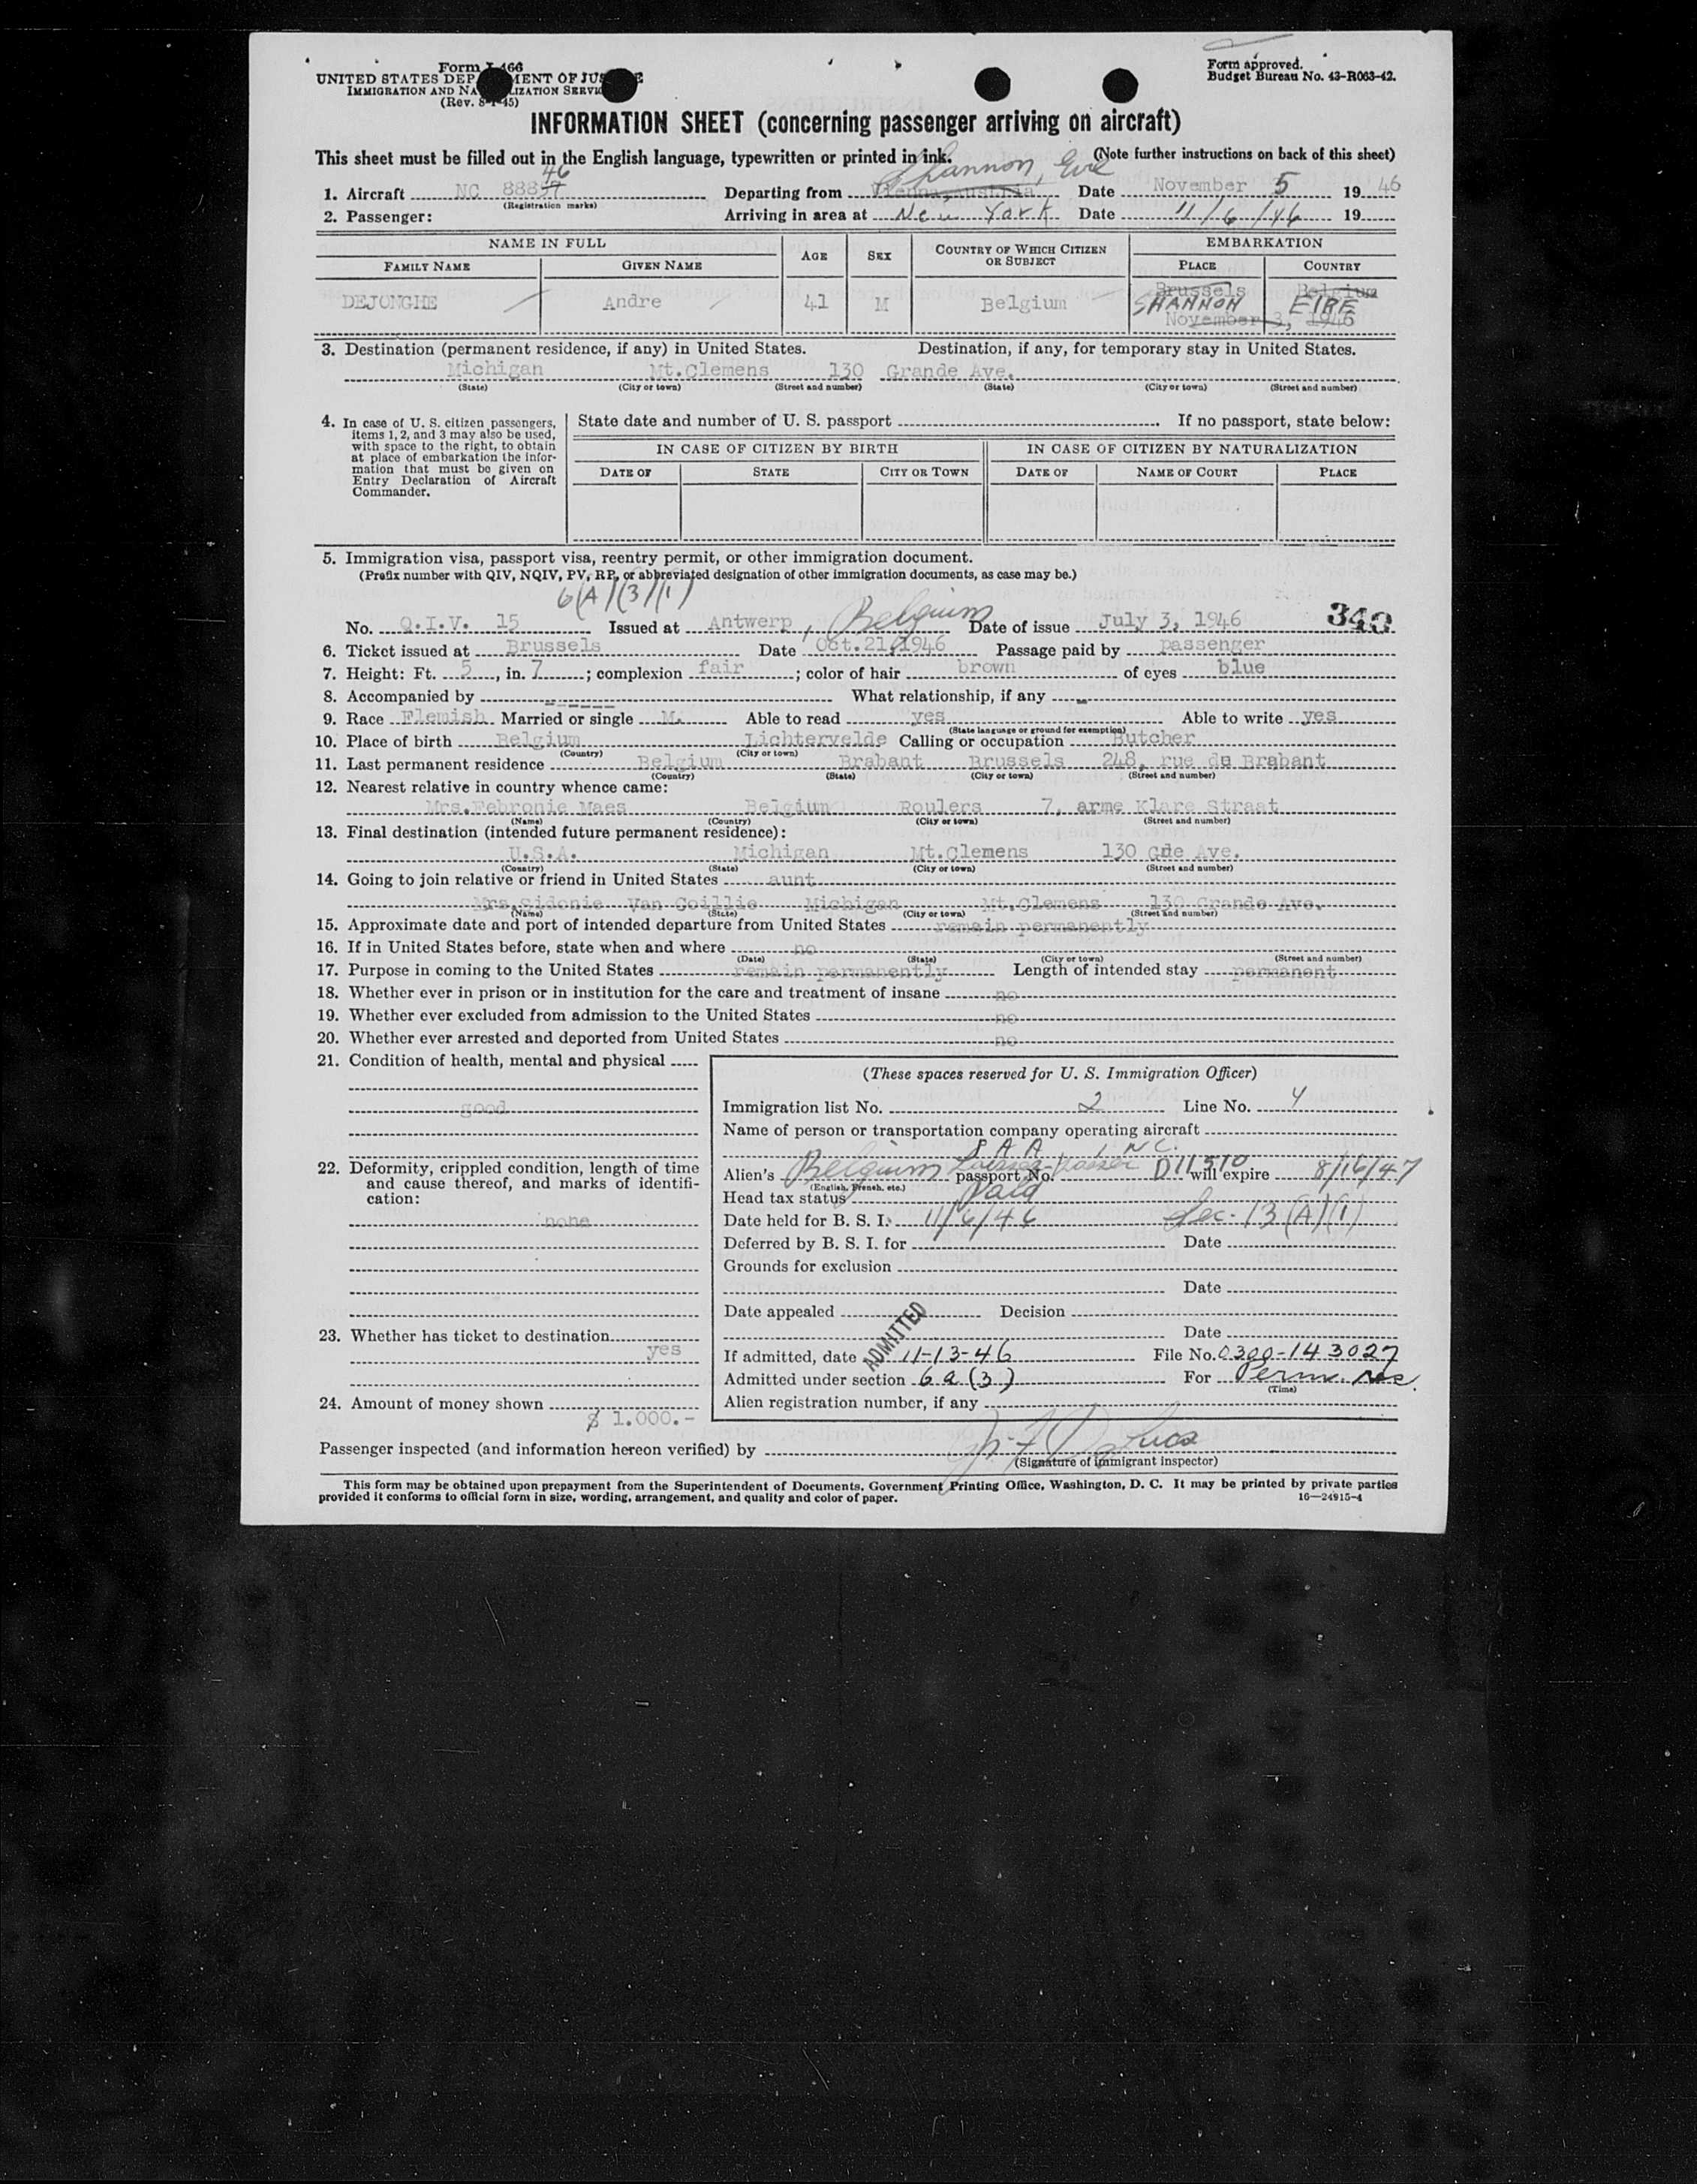 Form I-466
UNITED STATES DEPARTMENT OF JUSTICE
IMMIGRATION AND NATURALIZATION SERVICE
(Rev. 8-1-45)
Form approved.
Budget Bureau No. 43-R063-42.
INFORMATION SHEET (concerning passenger arriving on aircraft)
This sheet must be filled out in the English language, typewritten or printed in ink. (Note further instructions on back of this sheet)
46 Shannon, Eire
1. Aircraft NC 888 Departing from Vienna, Austria Date November 5 1946
(Registration marks)
2. Passenger: Arriving in area at New York Date 11/6/46 19
NAME IN FULL AGE SEX COUNTRY OF WHICH CITIZEN OR SUBJECT EMBARKATION
FAMILY NAME GIVEN NAME PLACE COUNTRY
Brussels Belgium
DEJONGHE Andre 41 M Belgium SHANNON EIRE
November 3, 1946
3. Destination (permanent residence, if any) in United States. Destination, if any, for temporary stay in United States.
Michigan Mt.Clemens 130 Grande Ave.
(State) (City or town) (Street and number) (State) (City or town) (Street and number)
4. In case of U. S. citizen passengers, items 1, 2, and 3 may also be used, with space to the right, to obtain at place of embarkation the information that must be given on Entry Declaration of Aircraft Commander.
State date and number of U. S. passport If no passport, state below:
IN CASE OF CITIZEN BY BIRTH IN CASE OF CITIZEN BY NATURALIZATION
DATE OF STATE CITY OR TOWN DATE OF NAME OF COURT PLACE
5. Immigration visa, passport visa, reentry permit, or other immigration document.
(Prefix number with QIV, NQIV, PV, RP, or abbreviated designation of other immigration documents, as case may be.)
6(A)(3)(1)
No. Q.I.V. 15 Issued at Antwerp, Belgium Date of issue July 3, 1946 340
6. Ticket issued at Brussels Date Oct.21,1946 Passage paid by passenger
7. Height: Ft. 5, in. 7; complexion fair; color of hair brown of eyes blue
8. Accompanied by ------ What relationship, if any --
9. Race Flemish Married or single M. Able to read yes Able to write yes
(State language or ground for exemption)
10. Place of birth Belgium Lichtervelde Calling or occupation Butcher
(Country) (City or town)
11. Last permanent residence Belgium Brabant Brussels 248, rue du Brabant
(Country) (State) (City or town) (Street and number)
12. Nearest relative in country whence came:
Mrs.Febronie Maes Belgium Roulers 7, arme Klare Straat
(Name) (Country) (City or town) (Street and number)
13. Final destination (intended future permanent residence):
U.S.A. Michigan Mt.Clemens 130 Gde Ave.
(Country) (State) (City or town) (Street and number)
14. Going to join relative or friend in United States aunt
Mrs.Sidonie Van Coillie Michigan Mt.Clemens 130 Grande Ave.
(Name) (State) (City or town) (Street and number)
15. Approximate date and port of intended departure from United States remain permanently
16. If in United States before, state when and where no
(Date) (State) (City or town) (Street and number)
17. Purpose in coming to the United States remain permanently Length of intended stay permanent
18. Whether ever in prison or in institution for the care and treatment of insane no
19. Whether ever excluded from admission to the United States no
20. Whether ever arrested and deported from United States no
21. Condition of health, mental and physical
good
22. Deformity, crippled condition, length of time and cause thereof, and marks of identification:
none
23. Whether has ticket to destination
yes
24. Amount of money shown
$ 1.000.-
(These spaces reserved for U. S. Immigration Officer)
Immigration list No. 2 Line No. 4
Name of person or transportation company operating aircraft
P A A INC.
Alien's Belgium passport No. D11510 will expire 8/16/47
(English, French, etc.)
Head tax status Paid
Date held for B. S. I. 11/6/46 Sec. 13(A)(1)
Deferred by B. S. I. for Date
Grounds for exclusion
Date
Date appealed Decision
Date
ADMITTED
If admitted, date 11-13-46 File No. 0300-143027
Admitted under section 6a(3) For Perm. res.
(Time)
Alien registration number, if any
Passenger inspected (and information hereon verified) by
(Signature of immigrant inspector)
This form may be obtained upon prepayment from the Superintendent of Documents, Government Printing Office, Washington, D. C. It may be printed by private parties
provided it conforms to official form in size, wording, arrangement, and quality and color of paper. 16—24915-4